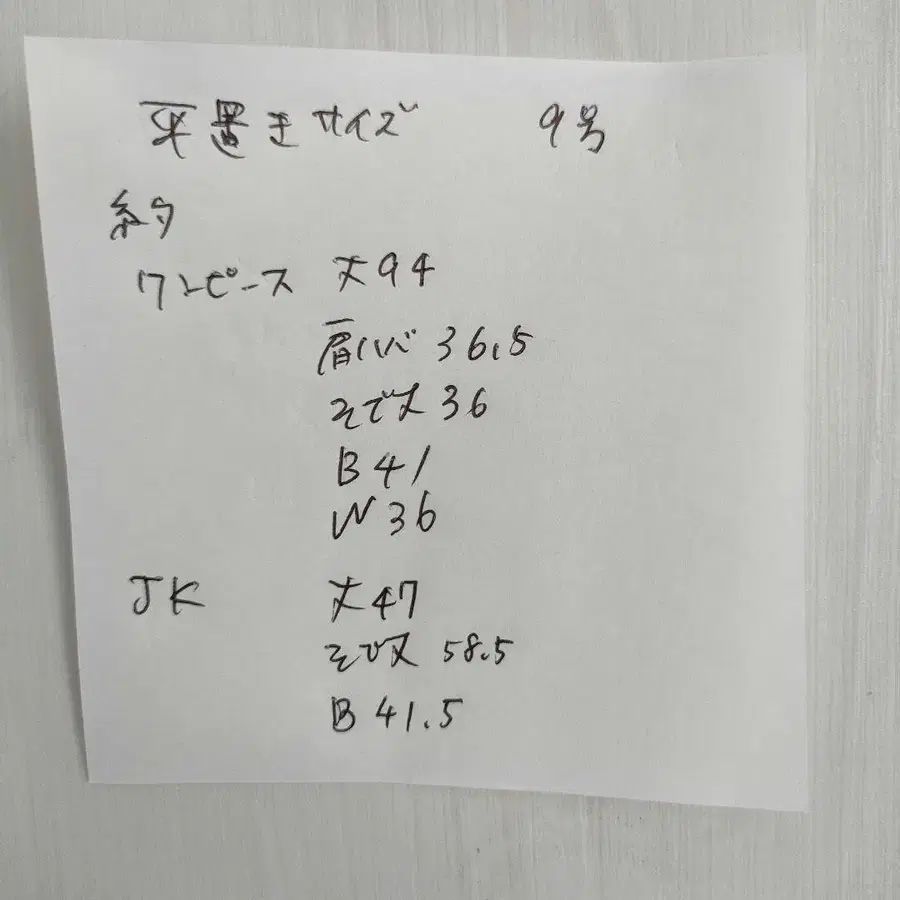 平置きサイズ 9号
約
ワンピース 丈94
肩ハバ 36.5
そで丈 36
B 41
W 36
JK 丈47
そで丈 58.5
B 41.5